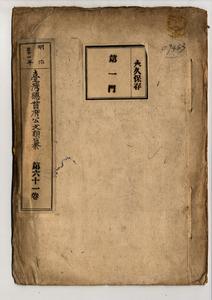 明治
臺灣總督府公文類纂
第六十一卷
永久保存
第一門